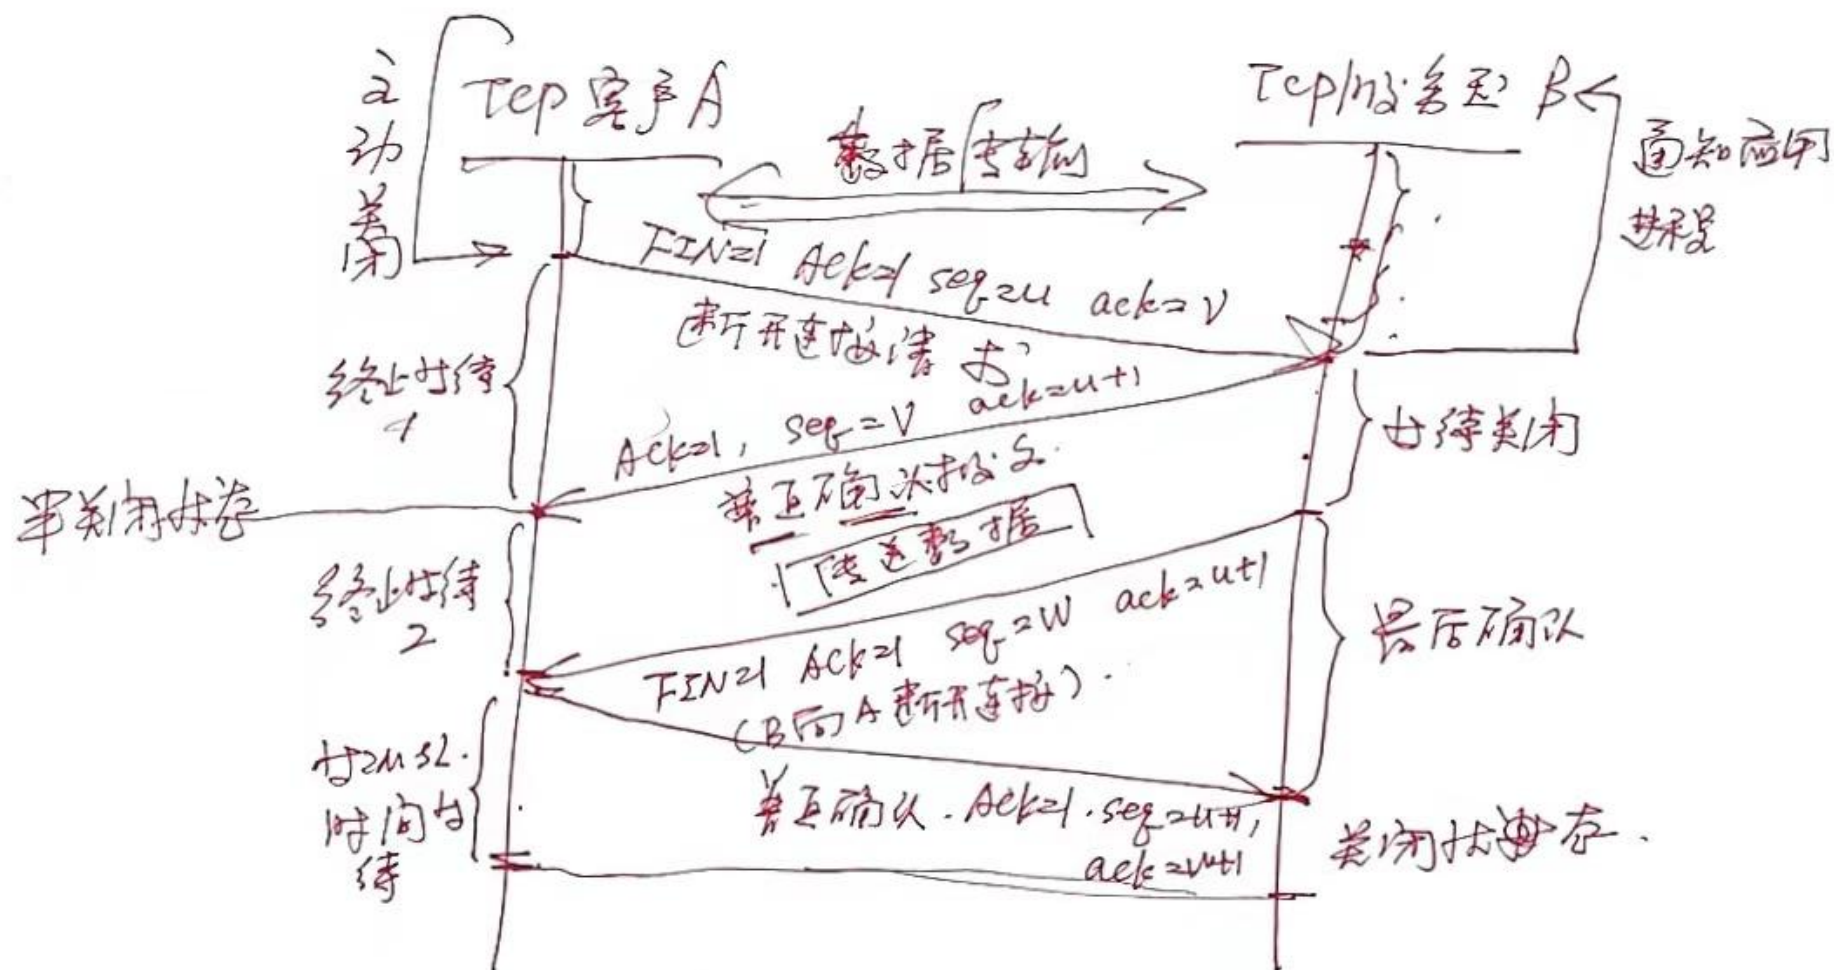 主动关闭
TCP 客户 A
TCP服务器 B
数据传输
通知应用
进程
FIN=1 ACK=1 seq=u ack=v
断开连接请求
终止等待
1
ACK=1, seq=V ack=u+1
等待关闭
半关闭状态
普正确认报文.
传送数据
终止等待
2
FIN=1 ACK=1 seq=W ack=u+1
(B向A断开连接).
最后确认
等2MSL.
时间等
待
普正确认. ACK=1. seq=u+1,
ack=w+1
关闭状态.